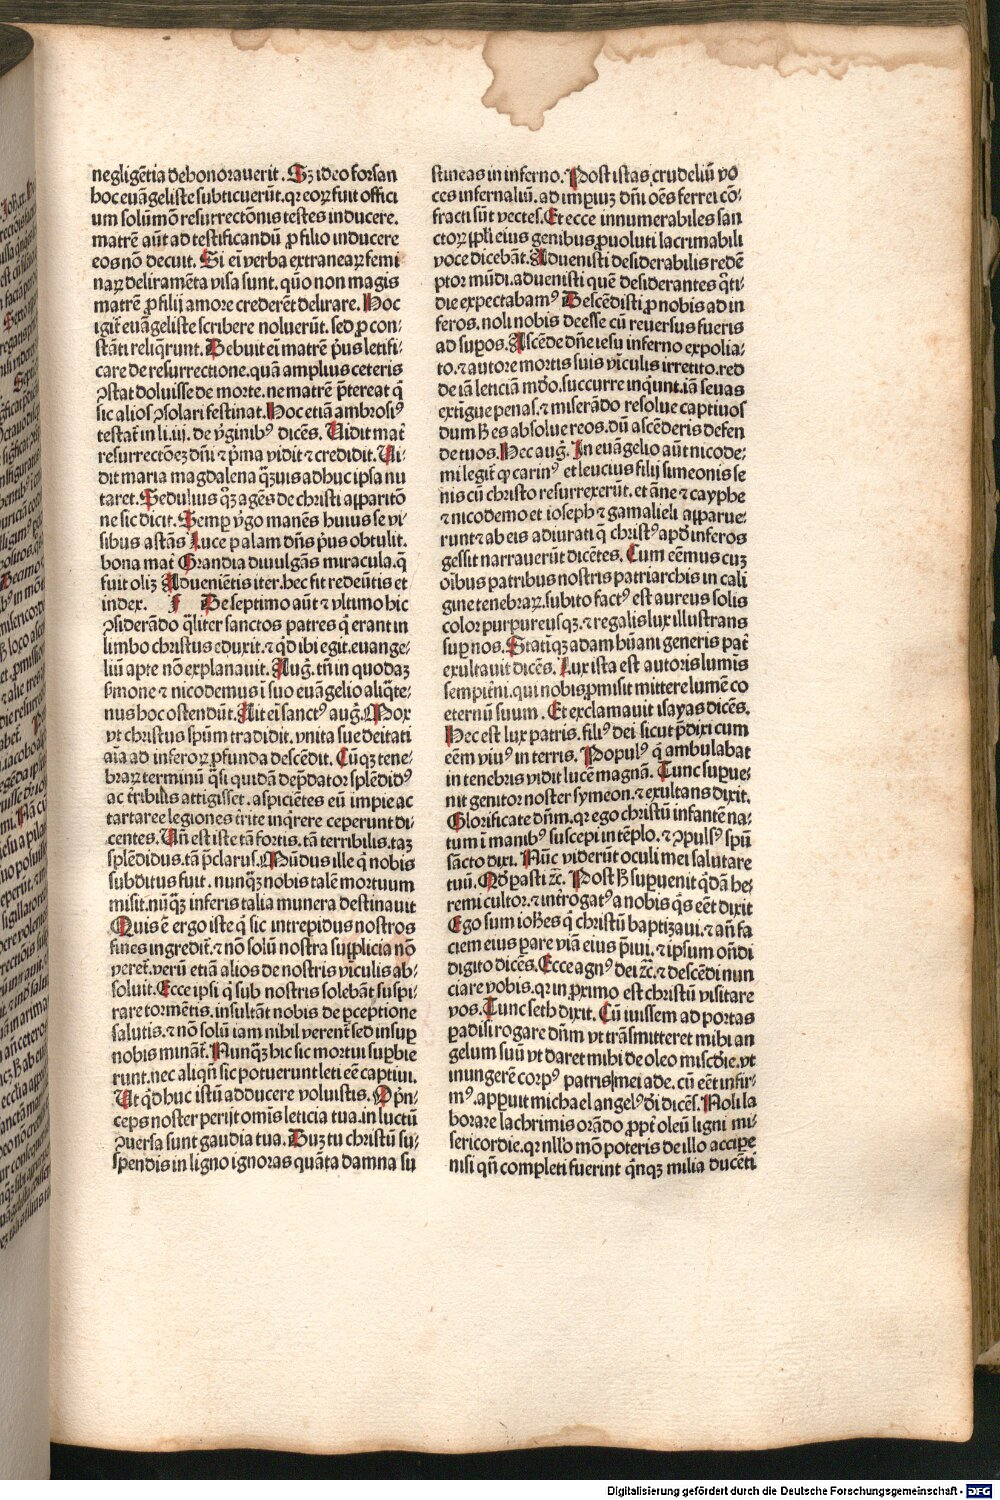 negligētia dehonorauerit. Sꝫ ideo forsan
hoc euāgeliste subticuerūt. qꝛ eoꝝ fuit offici
um solūmō resurrectōnis testes inducere.
matrē aūt ad testificandū ꝓ filio inducere
eos nō decuit. Si ei verba extraneaꝝ femi
naꝝ deliramēta visa sunt. quō non magis
matrē ꝓ filij amore crederēt delirare. Hoc
igit̄ euāgeliste scribere noluerūt. sed ꝓ con-
stāti reliq̄runt. Debuit ei matrē p̄us letifi-
care de resurrectione. quā amplius ceteris
ꝯstat doluisse de morte. ne matrē p̄tereat q̄
sic alios ꝯsolari festinat. Hoc etiā ambrosiꝰ
testat̄ in li. iij. de v̄ginibꝰ dicēs. Uidit mat̄
resurrectōeꝫ dn̄i ⁊ p̄ma vidit ⁊ credidit. Ui-
dit maria magdalena qꝫuis adhuc ipsa nu
taret. Sedulius qꝫ agēs de christi apparitō
ne sic dicit. Semꝑ v̄go manēs huius se vi-
sibus astās Luce palam dn̄s p̄us obtulit.
bona mat̄ Grandia diuulgās miracula. q̄
fuit oliꝫ Adueniētis iter. hec fit redeūtis et
index. F De septimo aūt ⁊ vltimo hic
ꝯsiderādo q̄liter sanctos patres q̄ erant in
limbo christus eduxit. ⁊ qd̄ ibi egit. euange-
liū apte nō explanauit. Aug. tn̄ in quodaꝫ
s̄mone ⁊ nicodemus ī suo euāgelio aliq̄te-
nus hoc ostendūt. Ait ei sanctꝰ auḡ. Mox
vt christus spūm tradidit. vnita sue deitati
aīa ad inferoꝝ ꝓfunda descēdit. Cūqꝫ tene-
braꝝ terminū q̄si quidā dep̄dator splēdidꝰ
ac t̄ribilis attigisset. aspiciētes eū impie ac
tartaree legiones t̄rite inq̄rere ceperunt di-
centes. Un̄ est iste tā fortis. tā terribilis. taꝫ
splēdidus. tā p̄clarus. Mūdus ille q̄ nobis
subditus fuit. nunqꝫ nobis talē mortuum
misit. nūqꝫ inferis talia munera destinauit
Quis ē ergo iste q̄ sic intrepidus nostros
fines ingredit̄. ⁊ nō solū nostra supplicia nō
veret̄. verū etiā alios de nostris vīculis ab-
soluit. Ecce ipsi q̄ sub nostris solebāt suspi-
rare tormētis. insultāt nobis de ꝑceptione
salutis. ⁊ nō solū iam nihil verent̄ sed insuꝑ
nobis minant̄. Nunqꝫ hic sic mortui suꝑbie
runt. nec aliqn̄ sic potuerunt leti eē captiui.
Ut qd̄ huc istū adducere voluistis. O p̄n-
ceps noster perijt omīs leticia tua. in luctū
ꝯuersa sunt gaudia tua. Duꝫ tu christū su-
spendis in ligno ignoras quāta damna su
stineas in inferno. Post istas crudeliū vo
ces infernaliū. ad imperiuꝫ dn̄i oēs ferrei cō-
fracti sūt vectes. Et ecce innumerabiles san
ctoꝝ ppl̄i eius genibus ꝓuoluti lacrimabili
voce dicebāt. Aduenisti desiderabilis redē
ptor mūdi. aduenisti quē desiderantes q̄ti-
die expectabamꝰ Descēdisti ꝓ nobis ad in
feros. noli nobis deesse cū reuersus fueris
ad suꝑos. Ascēde dn̄e iesu inferno expolia-
to. ⁊ autore mortis suis vīculis irretito. red
de iā leticiā mūdo. succurre inquiunt. iā seuas
extīgue penas. ⁊ miserādo resolue captiuos
dum hꝭ es absolue reos. dū ascēderis defen
de tuos. Hec auḡ. In euāgelio aūt nicode-
mi legit̄ ꝙ carinꝰ et leucius filij simeonis se
nis cū christo resurrexerūt. et āne ⁊ cayphe
⁊ nicodemo et ioseph ⁊ gamalieli apparue-
runt ⁊ ab eis adiurati q̄ christꝰ apd̄ inferos
gessit narrauerūt dicētes. Cum eēmus cuꝫ
oībus patribus nostris patriarchis in cali
gine tenebraꝝ. subito factꝰ est aureus solis
color purpureusqꝫ. ⁊ regalis lux illustrans
suꝑ nos. Statīqꝫ adam hūani generis pat̄
exultauit dicēs. Lux ista est autoris lumīs
sempit̄ni. qui nobis ꝓmisit mittere lumē co
eternū suum. Et exclamauit isayas dicēs.
Hec est lux patris. filiꝰ dei sicut p̄dixi cum
eēm viuꝰ in terris. Populꝰ q̄ ambulabat
in tenebris vidit lucē magnā. Tunc suꝑue-
nit genitor noster symeon. ⁊ exultans dixit.
Glorificate dn̄m. qꝛ ego christū infantē na-
tum ī manibꝰ suscepi in tēplo. ⁊ ꝯpulsꝰ spū
sācto dixi. Nūc viderūt oculi mei salutare
tuū. Qd̄ parasti ꝛc̄. Post hꝭ suꝑuenit qd̄ā he-
remi cultor. ⁊ int̄rogatꝰ a nobis q̄s eēt dixit
Ego sum ioħes q̄ christū baptizaui. ⁊ an̄ fa
ciem eius ꝑare viā eius p̄iui. ⁊ ipsum on̄di
digito dicēs. Ecce agnꝰ dei ꝛc̄. ⁊ descēdi nun
ciare vobis. qꝛ in ꝓximo est christū visitare
vos. Tunc seth dixit. Cū iuissem ad portas
ꝑadisi rogare dn̄m vt trāsmitteret mihi an
gelum suū vt daret mihi de oleo mīscd̄ie. vt
inungerē corpꝰ patris mei ade. cū eēt infir-
mꝰ. apꝑuit michael angelꝰ dn̄i dicēs. Noli la
borare lachrimis orādo ꝓpt̄ oleū ligni mi-
sericordie. qꝛ nllō mō poteris de illo accipe
nisi qn̄ completi fuerint q̄nqꝫ milia ducēti
Digitalisierung gefördert durch die Deutsche Forschungsgemeinschaft - DFG